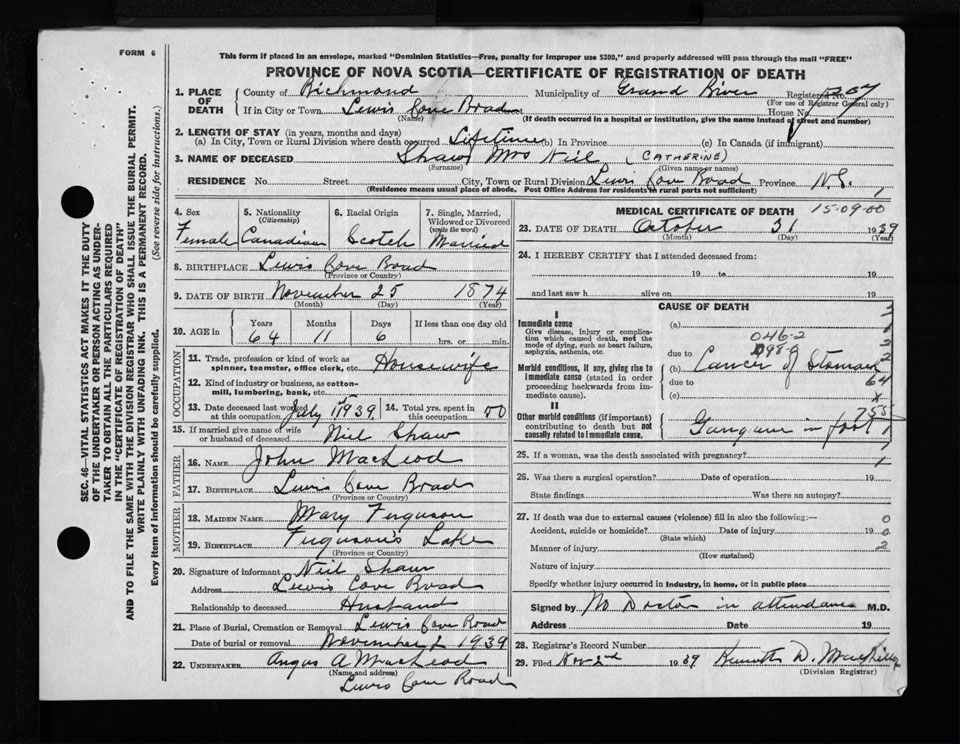 FORM 6
This form if placed in an envelope, marked "Dominion Statistics—Free, penalty for improper use $300," and properly addressed will pass through the mail "FREE"
PROVINCE OF NOVA SCOTIA—CERTIFICATE OF REGISTRATION OF DEATH
1. PLACE OF DEATH
County of Richmond Municipality of Grand River Registered No. 207
(For use of Registrar General only)
If in City or Town Lewis Cove Road House No.
(Name) (If death occurred in a hospital or institution, give the name instead of street and number)
2. LENGTH OF STAY (in years, months and days)
(a) In City, Town or Rural Division where death occurred Lifetime (b) In Province (c) In Canada (if immigrant)
3. NAME OF DECEASED Shaw Mrs Niel (CATHERINE)
(Surname) (Given name or names)
RESIDENCE No. Street City, Town or Rural Division Lewis Cove Road Province N.S.
(Residence means usual place of abode. Post Office Address for residents in rural parts not sufficient)
4. Sex
Female
5. Nationality
(Citizenship)
Canadian
6. Racial Origin
Scotch
7. Single, Married,
Widowed or Divorced
(write the word)
Married
8. BIRTHPLACE Lewis Cove Road
(Province or Country)
9. DATE OF BIRTH November 25 1874
(Month) (Day) (Year)
10. AGE in
Years Months Days If less than one day old
64 11 6 hrs. or min.
OCCUPATION
11. Trade, profession or kind of work as
spinner, teamster, office clerk, etc. Housewife
12. Kind of industry or business, as cotton-
mill, lumbering, bank, etc.
13. Date deceased last worked
at this occupation July 1st 1939
14. Total yrs. spent in
this occupation 40
15. If married give name of wife
or husband of deceased Niel Shaw
FATHER
16. NAME John MacLeod
17. BIRTHPLACE Lewis Cove Road
(Province or Country)
MOTHER
18. MAIDEN NAME Mary Ferguson
19. BIRTHPLACE Ferguson's Lake
(Province or Country)
20. Signature of informant Niel Shaw
Address Lewis Cove Road
Relationship to deceased Husband
21. Place of Burial, Cremation or Removal Lewis Cove Road
Date of burial or removal November 2 1939
22. UNDERTAKER Angus A MacLeod
(Name and address)
Lewis Cove Road
MEDICAL CERTIFICATE OF DEATH 15-09-00
23. DATE OF DEATH October 31 1939
(Month) (Day) (Year)
24. I HEREBY CERTIFY that I attended deceased from:
19 to 19
and last saw h alive on 19
CAUSE OF DEATH
I
Immediate cause
Give disease, injury or complica-
tion which caused death, not the
mode of dying, such as heart failure,
asphyxia, asthenia, etc.
Morbid conditions, if any, giving rise to
immediate cause (stated in order
proceeding backwards from im-
mediate cause).
II
Other morbid conditions (if important)
contributing to death but not
causally related to immediate cause.
(a)
046-2
due to
(b) Cancer of Stomach
due to 64
(c) x
Gangrene in foot
25. If a woman, was the death associated with pregnancy? 1
26. Was there a surgical operation? Date of operation 19
State findings Was there an autopsy?
27. If death was due to external causes (violence) fill in also the following:— 0
Accident, suicide or homicide? Date of injury 19 0
(State which)
Manner of injury 2
(How sustained)
Nature of injury
Specify whether injury occurred in industry, in home, or in public place
Signed by No Doctor in attendance M.D.
Address Date 19
28. Registrar's Record Number
29. Filed Nov 2nd 1939 Kenneth D.
(Division Registrar)
SEC. 46—VITAL STATISTICS ACT MAKES IT THE DUTY
OF THE UNDERTAKER OR PERSON ACTING AS UNDER-
TAKER TO OBTAIN ALL THE PARTICULARS REQUIRED
IN THE "CERTIFICATE OF REGISTRATION OF DEATH"
AND TO FILE THE SAME WITH THE DIVISION REGISTRAR WHO SHALL ISSUE THE BURIAL PERMIT.
WRITE PLAINLY WITH UNFADING INK. THIS IS A PERMANENT RECORD.
Every item of information should be carefully supplied. (See reverse side for instructions.)